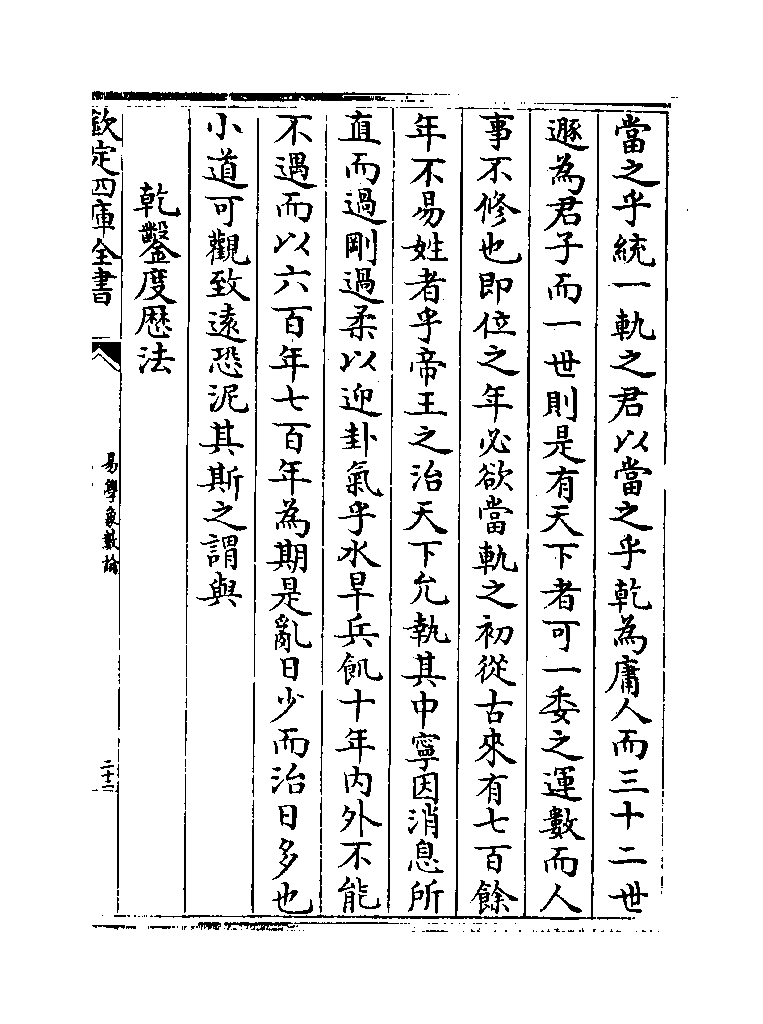 當之乎統一軌之君以當之乎乾為庸人而三十二世
遯為君子而一世則是有天下者可一委之運數而人
事不修也即位之年必欲當軌之初從古來有七百餘
年不易姓者乎帝王之治天下允執其中寧因消息所
直而過剛過柔以迎卦氣乎水旱兵飢十年内外不能
不遇而以六百年七百年為期是亂日少而治日多也
小道可觀致遠恐泥其斯之謂與
乾鑿度厯法
欽定四庫全書
易學象數論
二十二